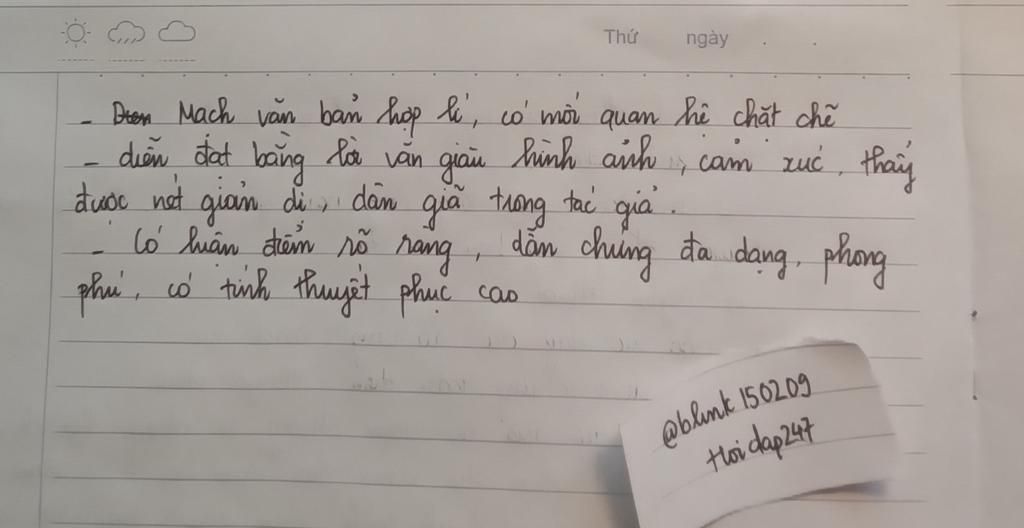 Thứ ngày . .
- Mạch văn bản hợp lí, có mối quan hệ chặt chẽ
- diễn đạt bằng lời văn giàu hình ảnh, cảm xúc, thấy
được nét giản dị, dân giã trong tác giả.
- Có luận điểm rõ ràng, dẫn chứng đa dạng, phong
phú, có tính thuyết phục cao
@blink150209
Hoidap247